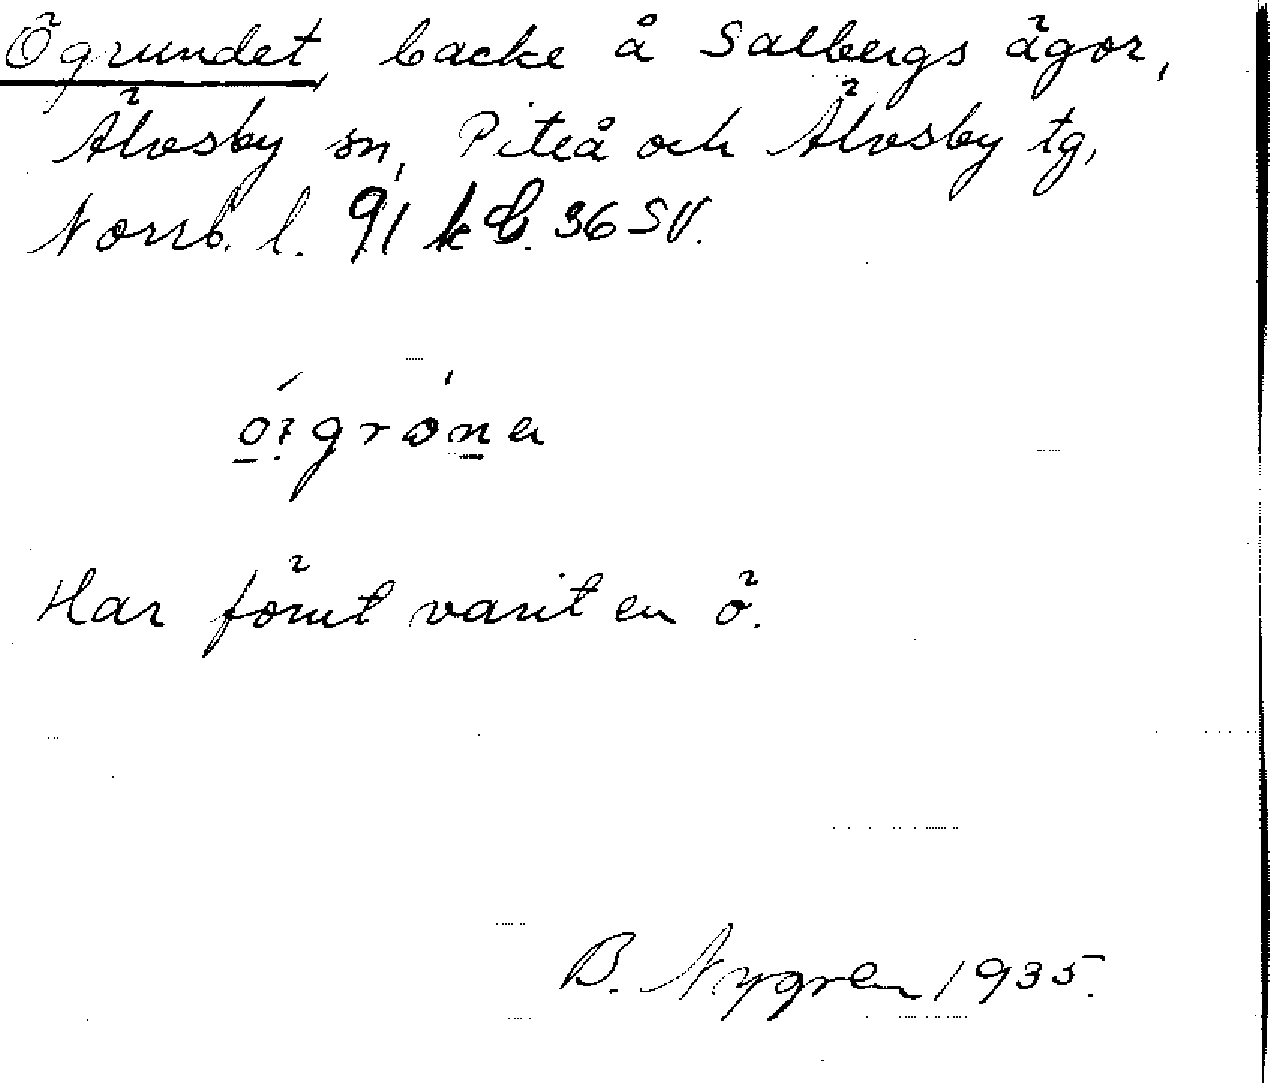 Ögrundet, backe å Salbergs ägor,
Älvsby sn, Piteå och Älvsby tg,
Norrb. l. 91 kbl. 36 SV.
Har förut varit en ö.
B. Nygren 1935.